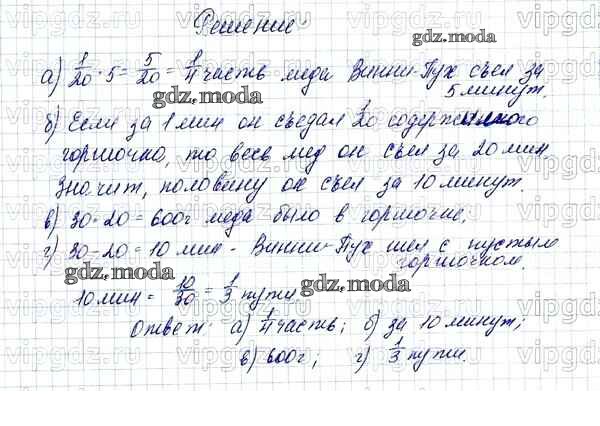 Решение
а) 1/20 · 5 = 5/20 = 1/4 часть меда Винни-Пух съел за
5 минут.
б) Если за 1 мин он съедал 1/20 содержимого
горшочка, то весь мед он съел за 20 мин
Значит, половину он съел за 10 минут.
в) 30 · 20 = 600г меда было в горшочке.
г) 30 - 20 = 10 мин - Винни-Пух шел с пустым
горшочком.
10 мин = 10/30 = 1/3 пути
Ответ: а) 1/4 часть; б) за 10 минут;
в) 600г; г) 1/3 пути.
gdz.moda
gdz.moda
gdz.moda
gdz.moda
gdz.moda
vipgdz.ru